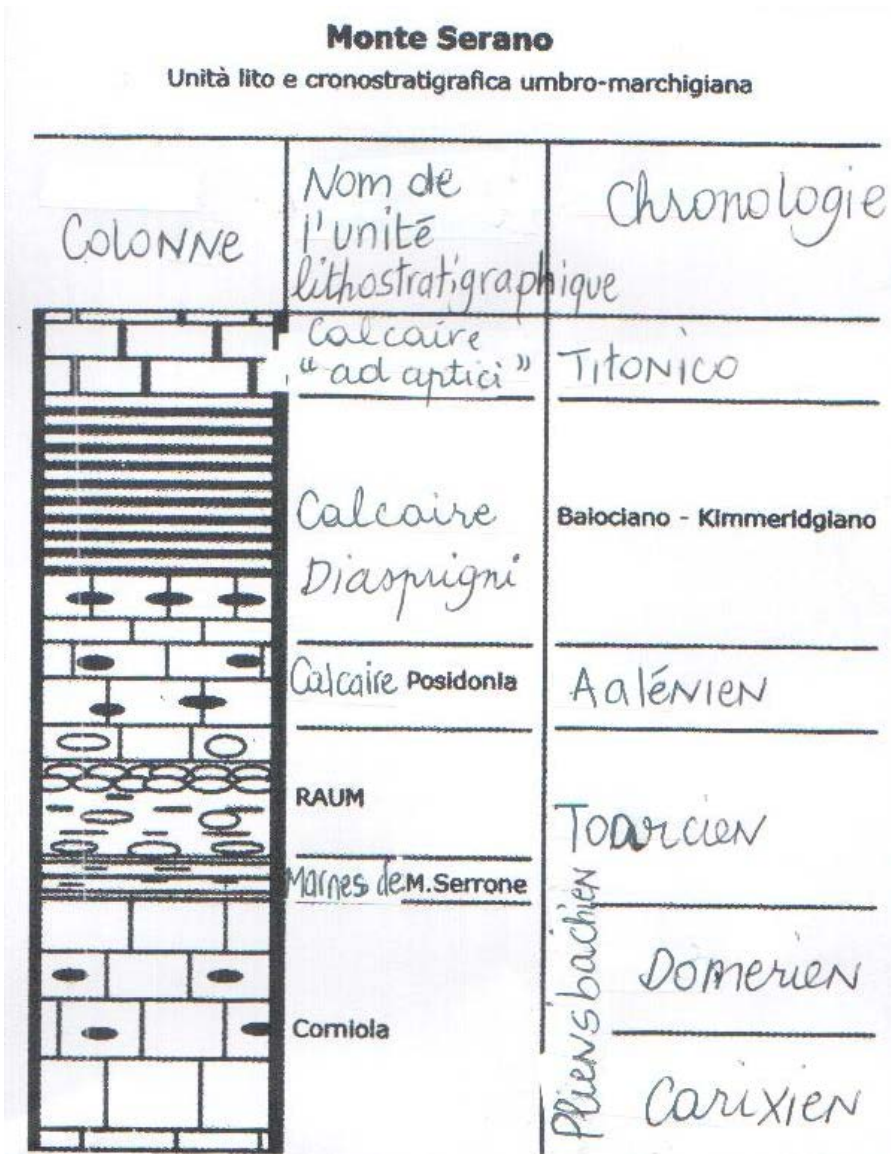 Monte Serano
Unità lito e cronostratigrafica umbro-marchigiana
COLONNE
Nom de
l'unité
lithostratigraphique
Chronologie
Calcaire
"ad aptici"
TitoNico
Calcaire
Diasprigni
Baiociano - Kimmeridgiano
Calcaire Posidonia
AaléNIEN
RAUM
ToarcieN
Marnes de M.Serrone
Corniola
PlieNsbachieN
DomerieN
CarixieN